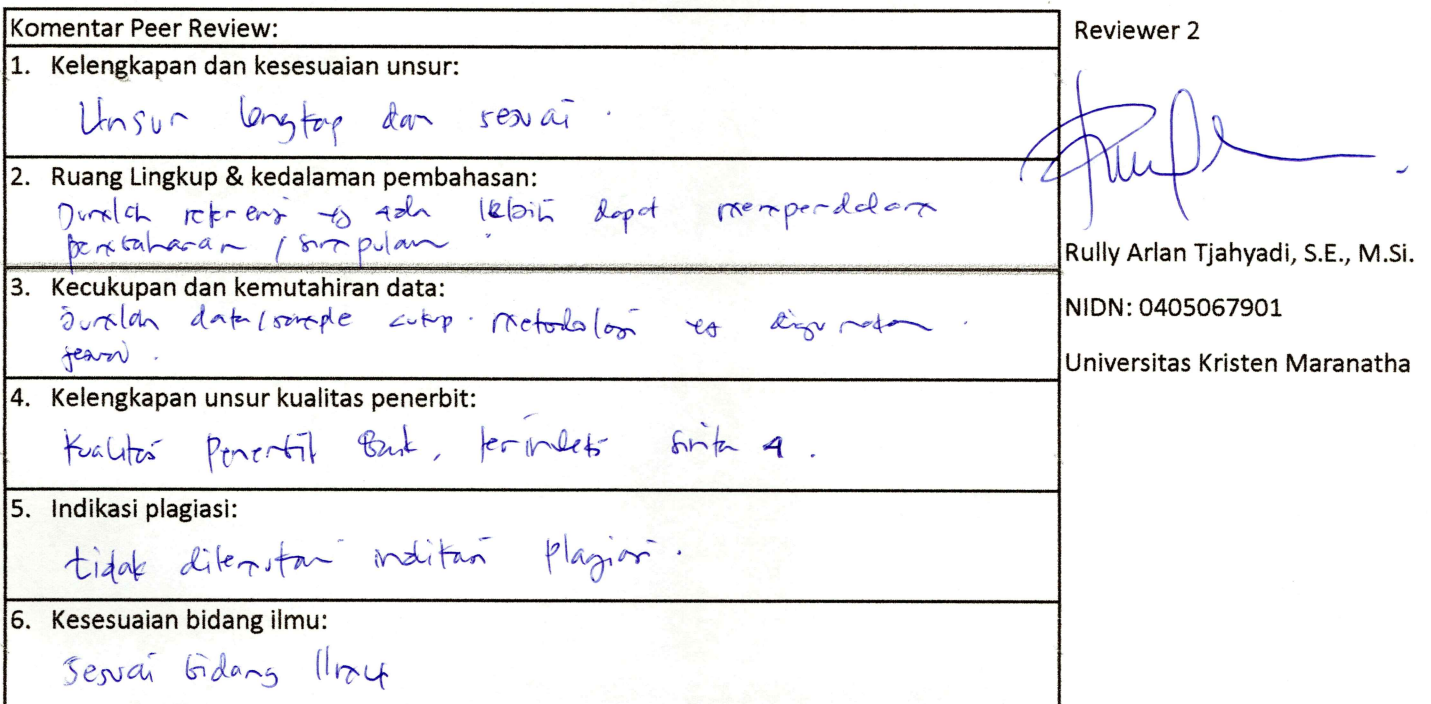 Komentar Peer Review:
1. Kelengkapan dan kesesuaian unsur:
Unsur lengkap dan sesuai.
2. Ruang Lingkup & kedalaman pembahasan:
Jumlah referensi yg ada lebih dapat memperdalam
pembahasan / simpulan.
3. Kecukupan dan kemutahiran data:
Jumlah data/sample cukup. metodologi yg digunakan
sesuai.
4. Kelengkapan unsur kualitas penerbit:
Kualitas Penerbit Baik, terindeks sinta 4.
5. Indikasi plagiasi:
tidak ditemukan indikasi plagiasi.
6. Kesesuaian bidang ilmu:
Sesuai bidang ilmu
Reviewer 2
Rully Arlan Tjahyadi, S.E., M.Si.
NIDN: 0405067901
Universitas Kristen Maranatha